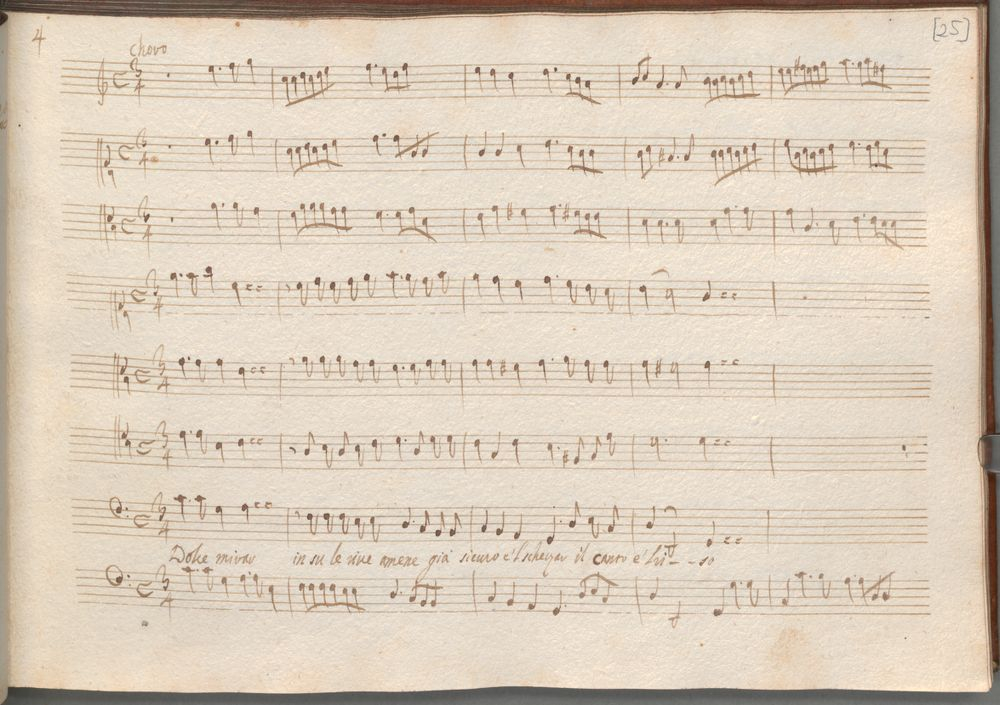 4
[25]
Choro
Dolce mirar in su le rive amene già sicuro e'l scherzar il canto e'l ri - - so